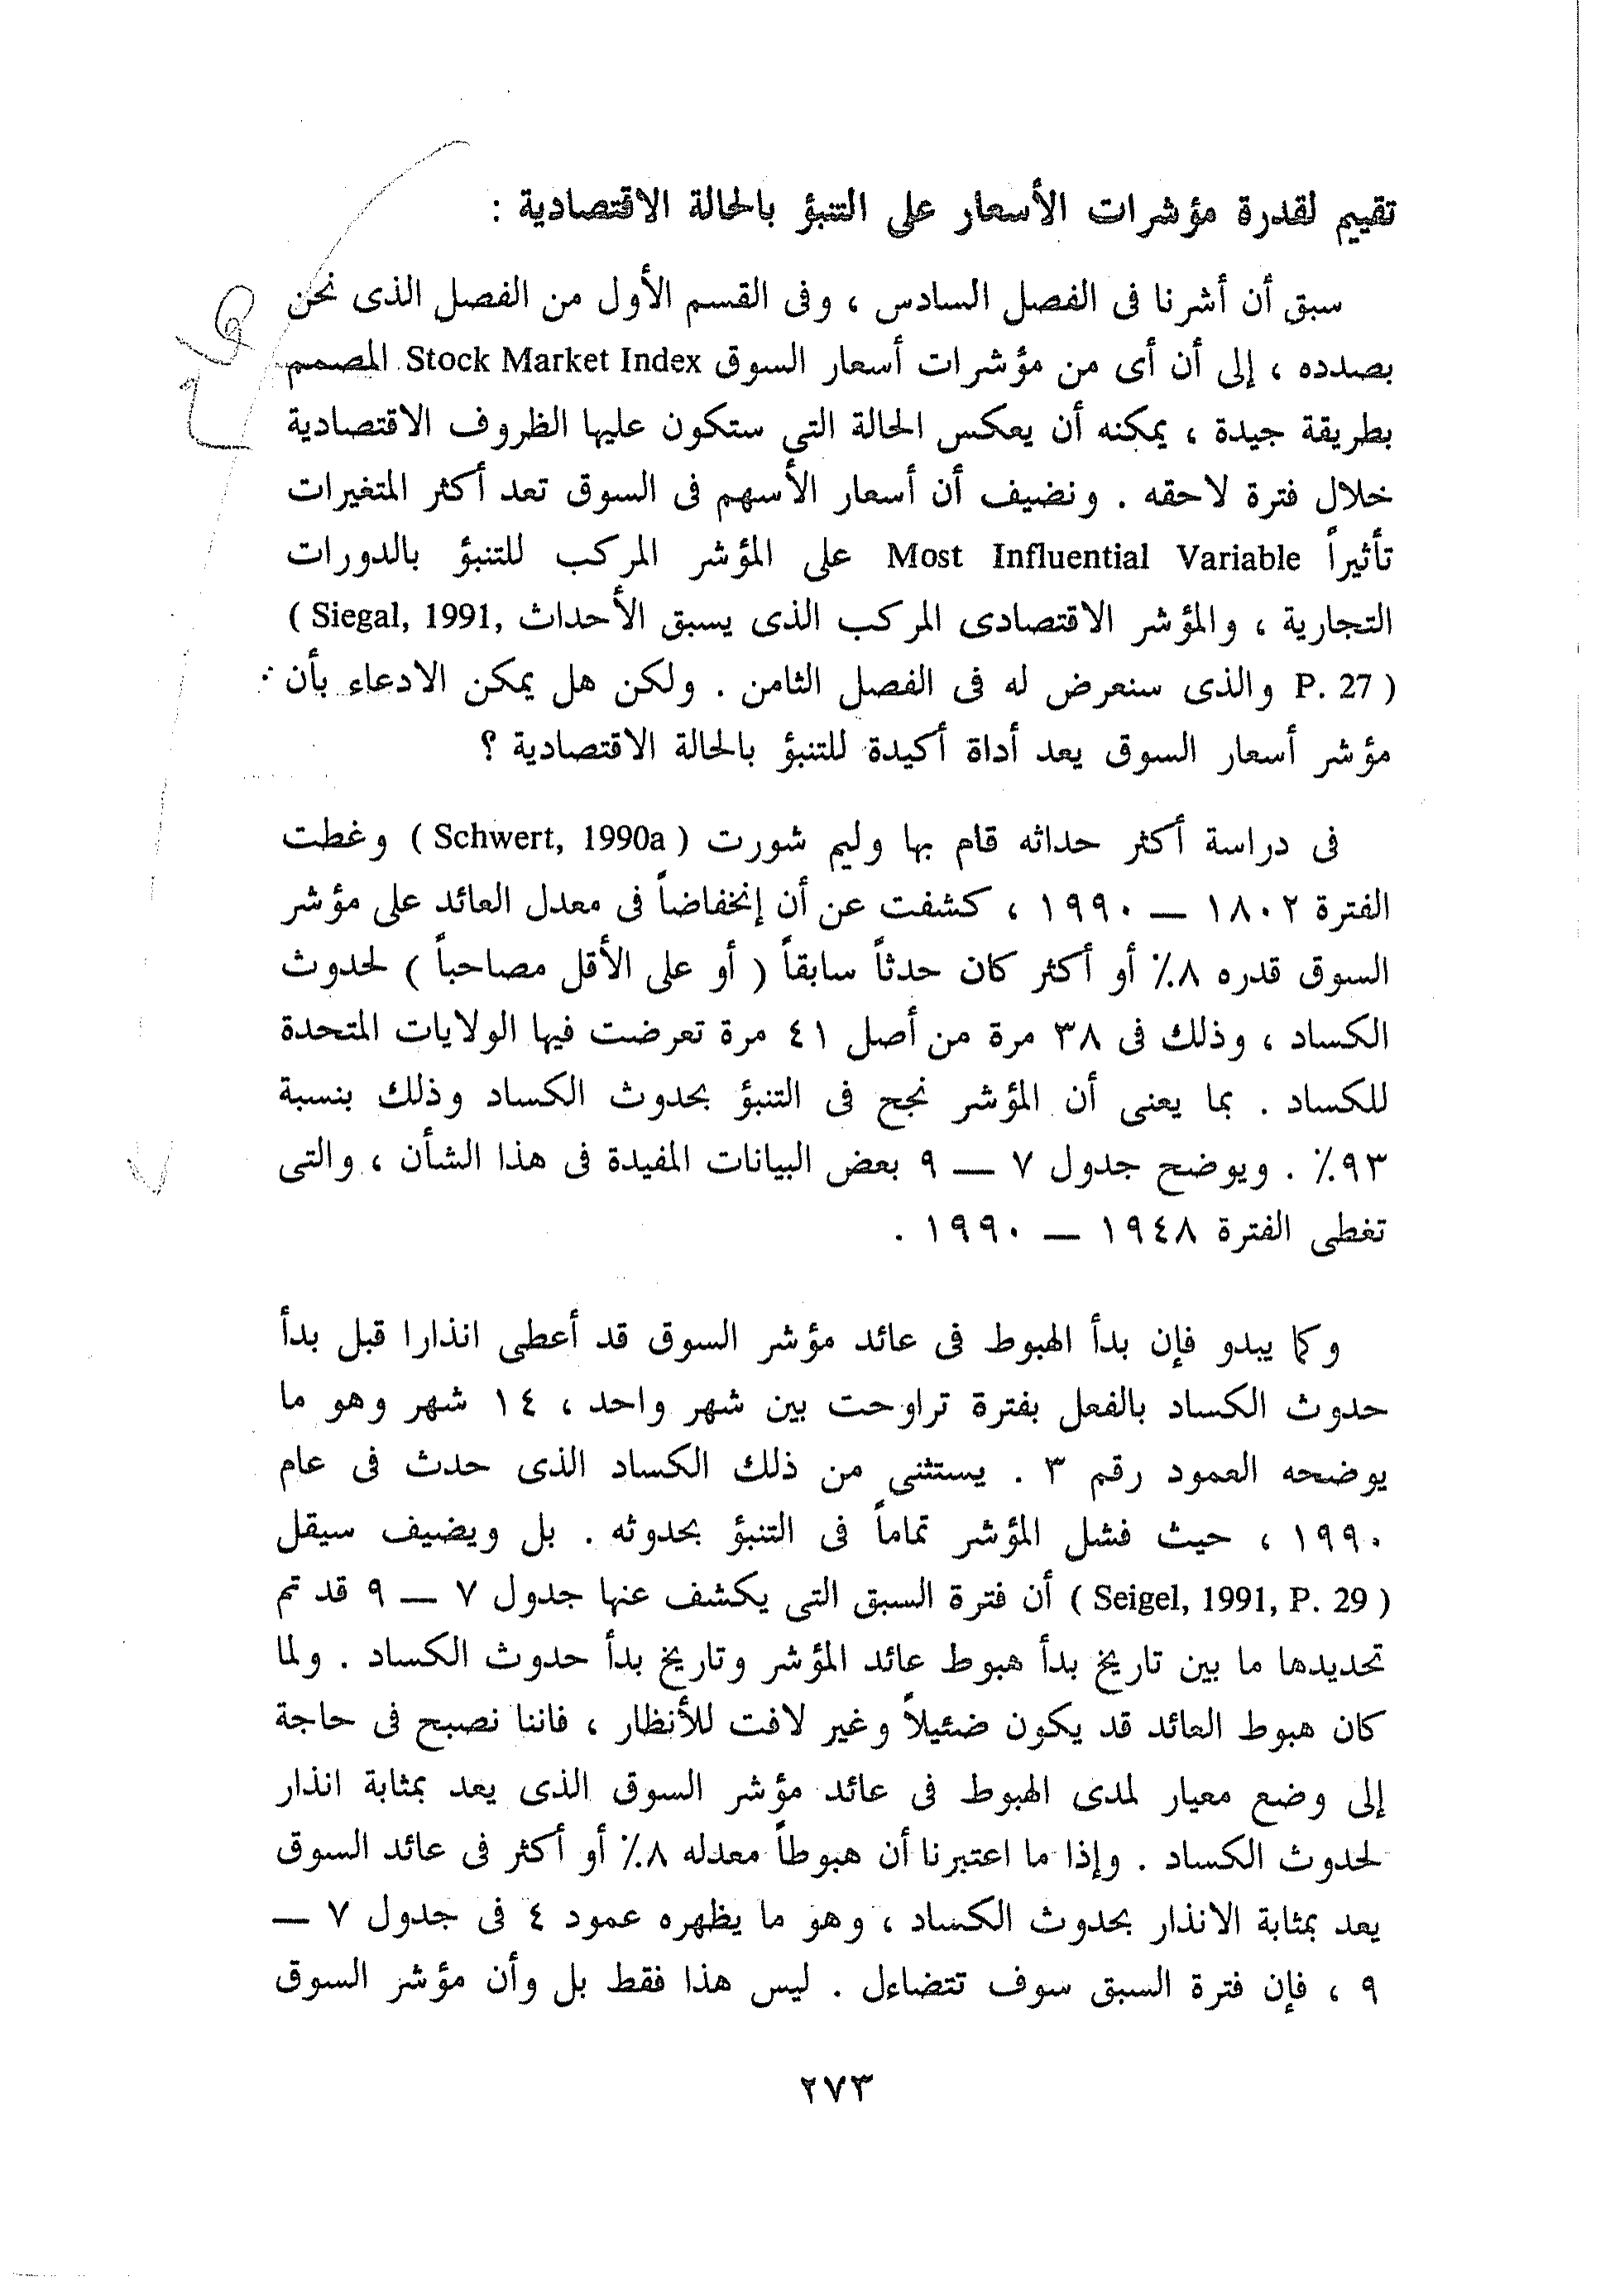 تقييم لقدرة مؤشرات الأسعار على التنبؤ بالحالة الاقتصادية :
سبق أن أشرنا فى الفصل السادس ، وفى القسم الأول من الفصل الذى نحن
بصدده ، إلى أن أى من مؤشرات أسعار السوق Stock Market Index المصمم
بطريقة جيدة ، يمكنه أن يعكس الحالة التى ستكون عليها الظروف الاقتصادية
خلال فترة لاحقه . ونضيف أن أسعار الأسهم فى السوق تعد أكثر المتغيرات
تأثيراً Most Influential Variable على المؤشر المركب للتنبؤ بالدورات
التجارية ، والمؤشر الاقتصادى المركب الذى يسبق الأحداث ( Siegal, 1991,
P. 27 ) والذى سنعرض له فى الفصل الثامن . ولكن هل يمكن الادعاء بأن
مؤشر أسعار السوق يعد أداة أكيدة للتنبؤ بالحالة الاقتصادية ؟
فى دراسة أكثر حداثه قام بها وليم شورت ( Schwert, 1990a ) وغطت
الفترة ١٨٠٢ — ١٩٩٠ ، كشفت عن أن إنخفاضاً فى معدل العائد على مؤشر
السوق قدره ٨٪ أو أكثر كان حدثاً سابقاً ( أو على الأقل مصاحباً ) لحدوث
الكساد ، وذلك فى ٣٨ مرة من أصل ٤١ مرة تعرضت فيها الولايات المتحدة
للكساد . بما يعنى أن المؤشر نجح فى التنبؤ بحدوث الكساد وذلك بنسبة
٩٣٪ . ويوضح جدول ٧ — ٩ بعض البيانات المفيدة فى هذا الشأن ، والتى
تغطى الفترة ١٩٤٨ — ١٩٩٠ .
وكما يبدو فإن بدأ الهبوط فى عائد مؤشر السوق قد أعطى انذارا قبل بدأ
حدوث الكساد بالفعل بفترة تراوحت بين شهر واحد ، ١٤ شهر وهو ما
يوضحه العمود رقم ٣ . يستثنى من ذلك الكساد الذى حدث فى عام
١٩٩٠ ، حيث فشل المؤشر تماماً فى التنبؤ بحدوثه . بل ويضيف سيقل
( Seigel, 1991, P. 29 ) أن فترة السبق التى يكشف عنها جدول ٧ — ٩ قد تم
تحديدها ما بين تاريخ بدأ هبوط عائد المؤشر وتاريخ بدأ حدوث الكساد . ولما
كان هبوط العائد قد يكون ضئيلاً وغير لافت للأنظار ، فاننا نصبح فى حاجة
إلى وضع معيار لمدى الهبوط فى عائد مؤشر السوق الذى يعد بمثابة انذار
لحدوث الكساد . وإذا ما اعتبرنا أن هبوطاً معدله ٨٪ أو أكثر فى عائد السوق
يعد بمثابة الانذار بحدوث الكساد ، وهو ما يظهره عمود ٤ فى جدول ٧ —
٩ ، فإن فترة السبق سوف تتضاءل . ليس هذا فقط بل وأن مؤشر السوق
٢٧٣